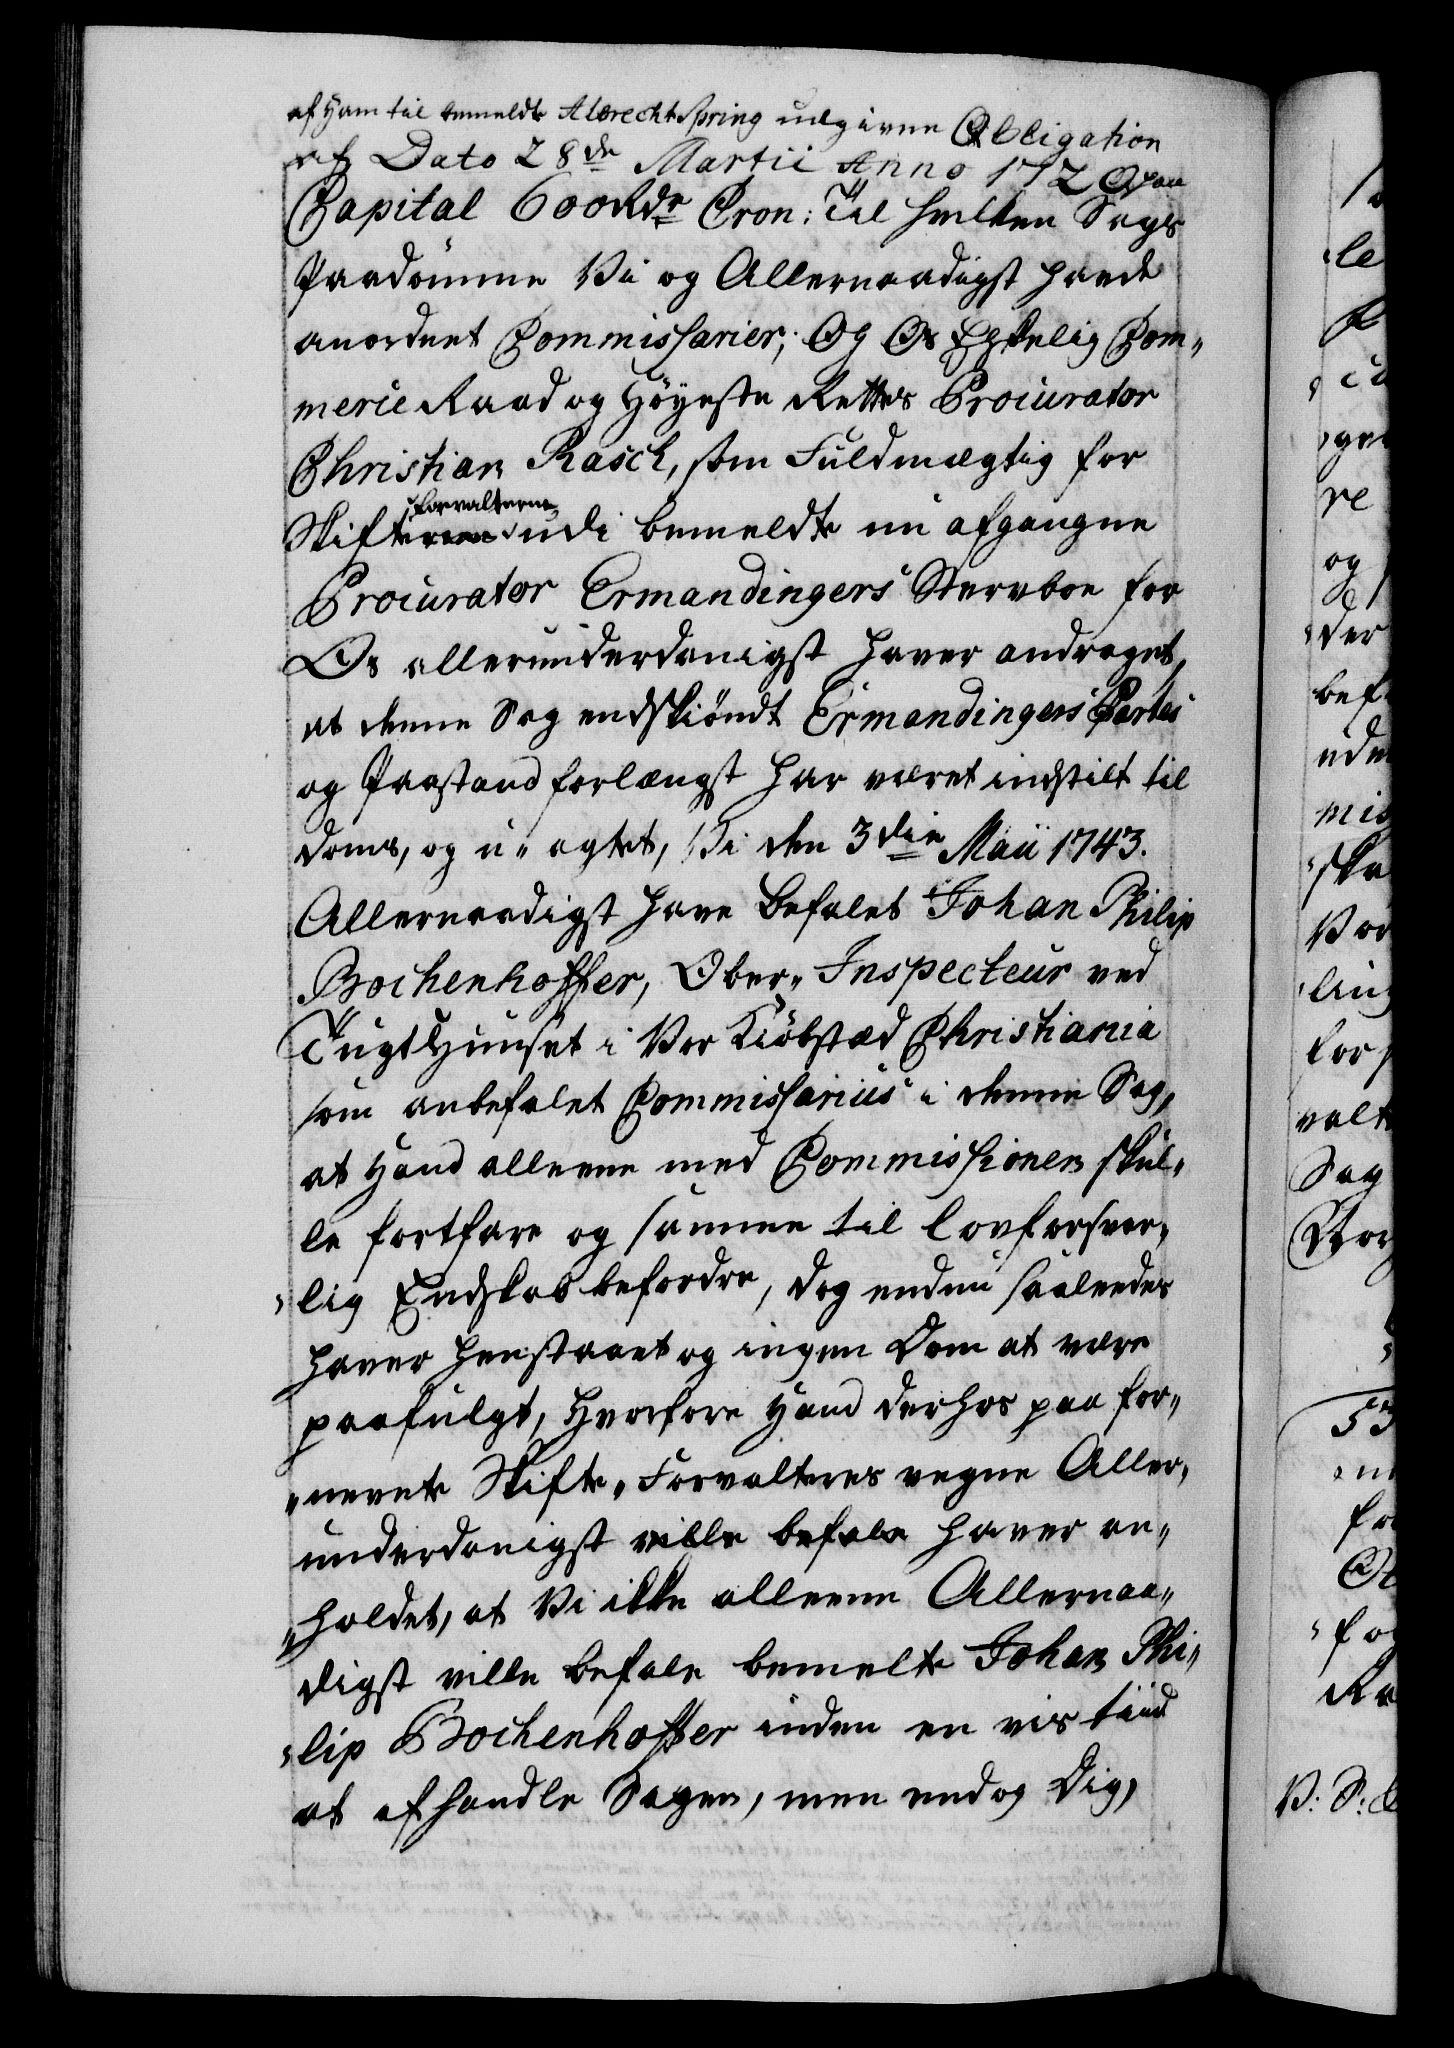 af ham til bemeldte Albrecht Spring udgivne Obligation
af Dato 28de Martii Anno 1720 paa
Capital 600 Rdr Cron: Til hvilken Sags
Paadømme Vi og Allernaadigst havde
anordnet Commissarier; Og Os Elskelig Com„
merce Raad og Höyeste Rettes Procurator
Christian Rasch, som Fuldmægtig for
Skifte forvalterne udi bemeldte nu afgangne
Procurator Ermandingers Sterboe for
Os allerunderdanigst haver andraget,
at denne Sag endskiöndt Ermandingers Partes
og Paastand forlængst har været indstilt til
doms, og u„agtet, Vi den 3die Maii 1743.
Allernaadigst have befalet Johan Philip
Bochenhoffer, Ober„Inspecteur ved
Tugthuuset i Vor Kiöbstæd Christiania
som anbefalet Commissarius i denne Sag,
at hand alleene med Commissionen skul„
le fortfare og samme til lovforsvar„
„lig Endskab befordre, dog endnu saaleedes
haver henstaaet og ingen Dom at være
paafulgt, hvorfore hand derhos paa for„
„nevnte Skifte„Forvalteres vegne Aller„
underdanigst ville befale haver an„
„holdet, at Vi ikke alleene Allernaa„
digst ville befale bemelte Johan Phi„
„lip Bochenhoffer inden en vis tiid
at afhandle Sagen, men endog Dig,